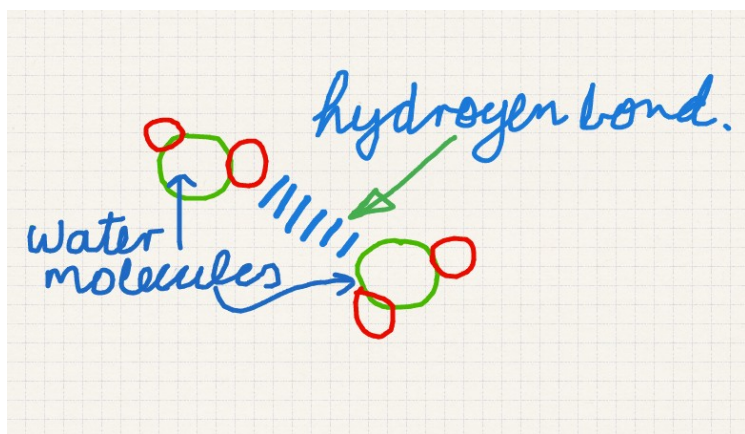 hydrogen bond.
water
molecules